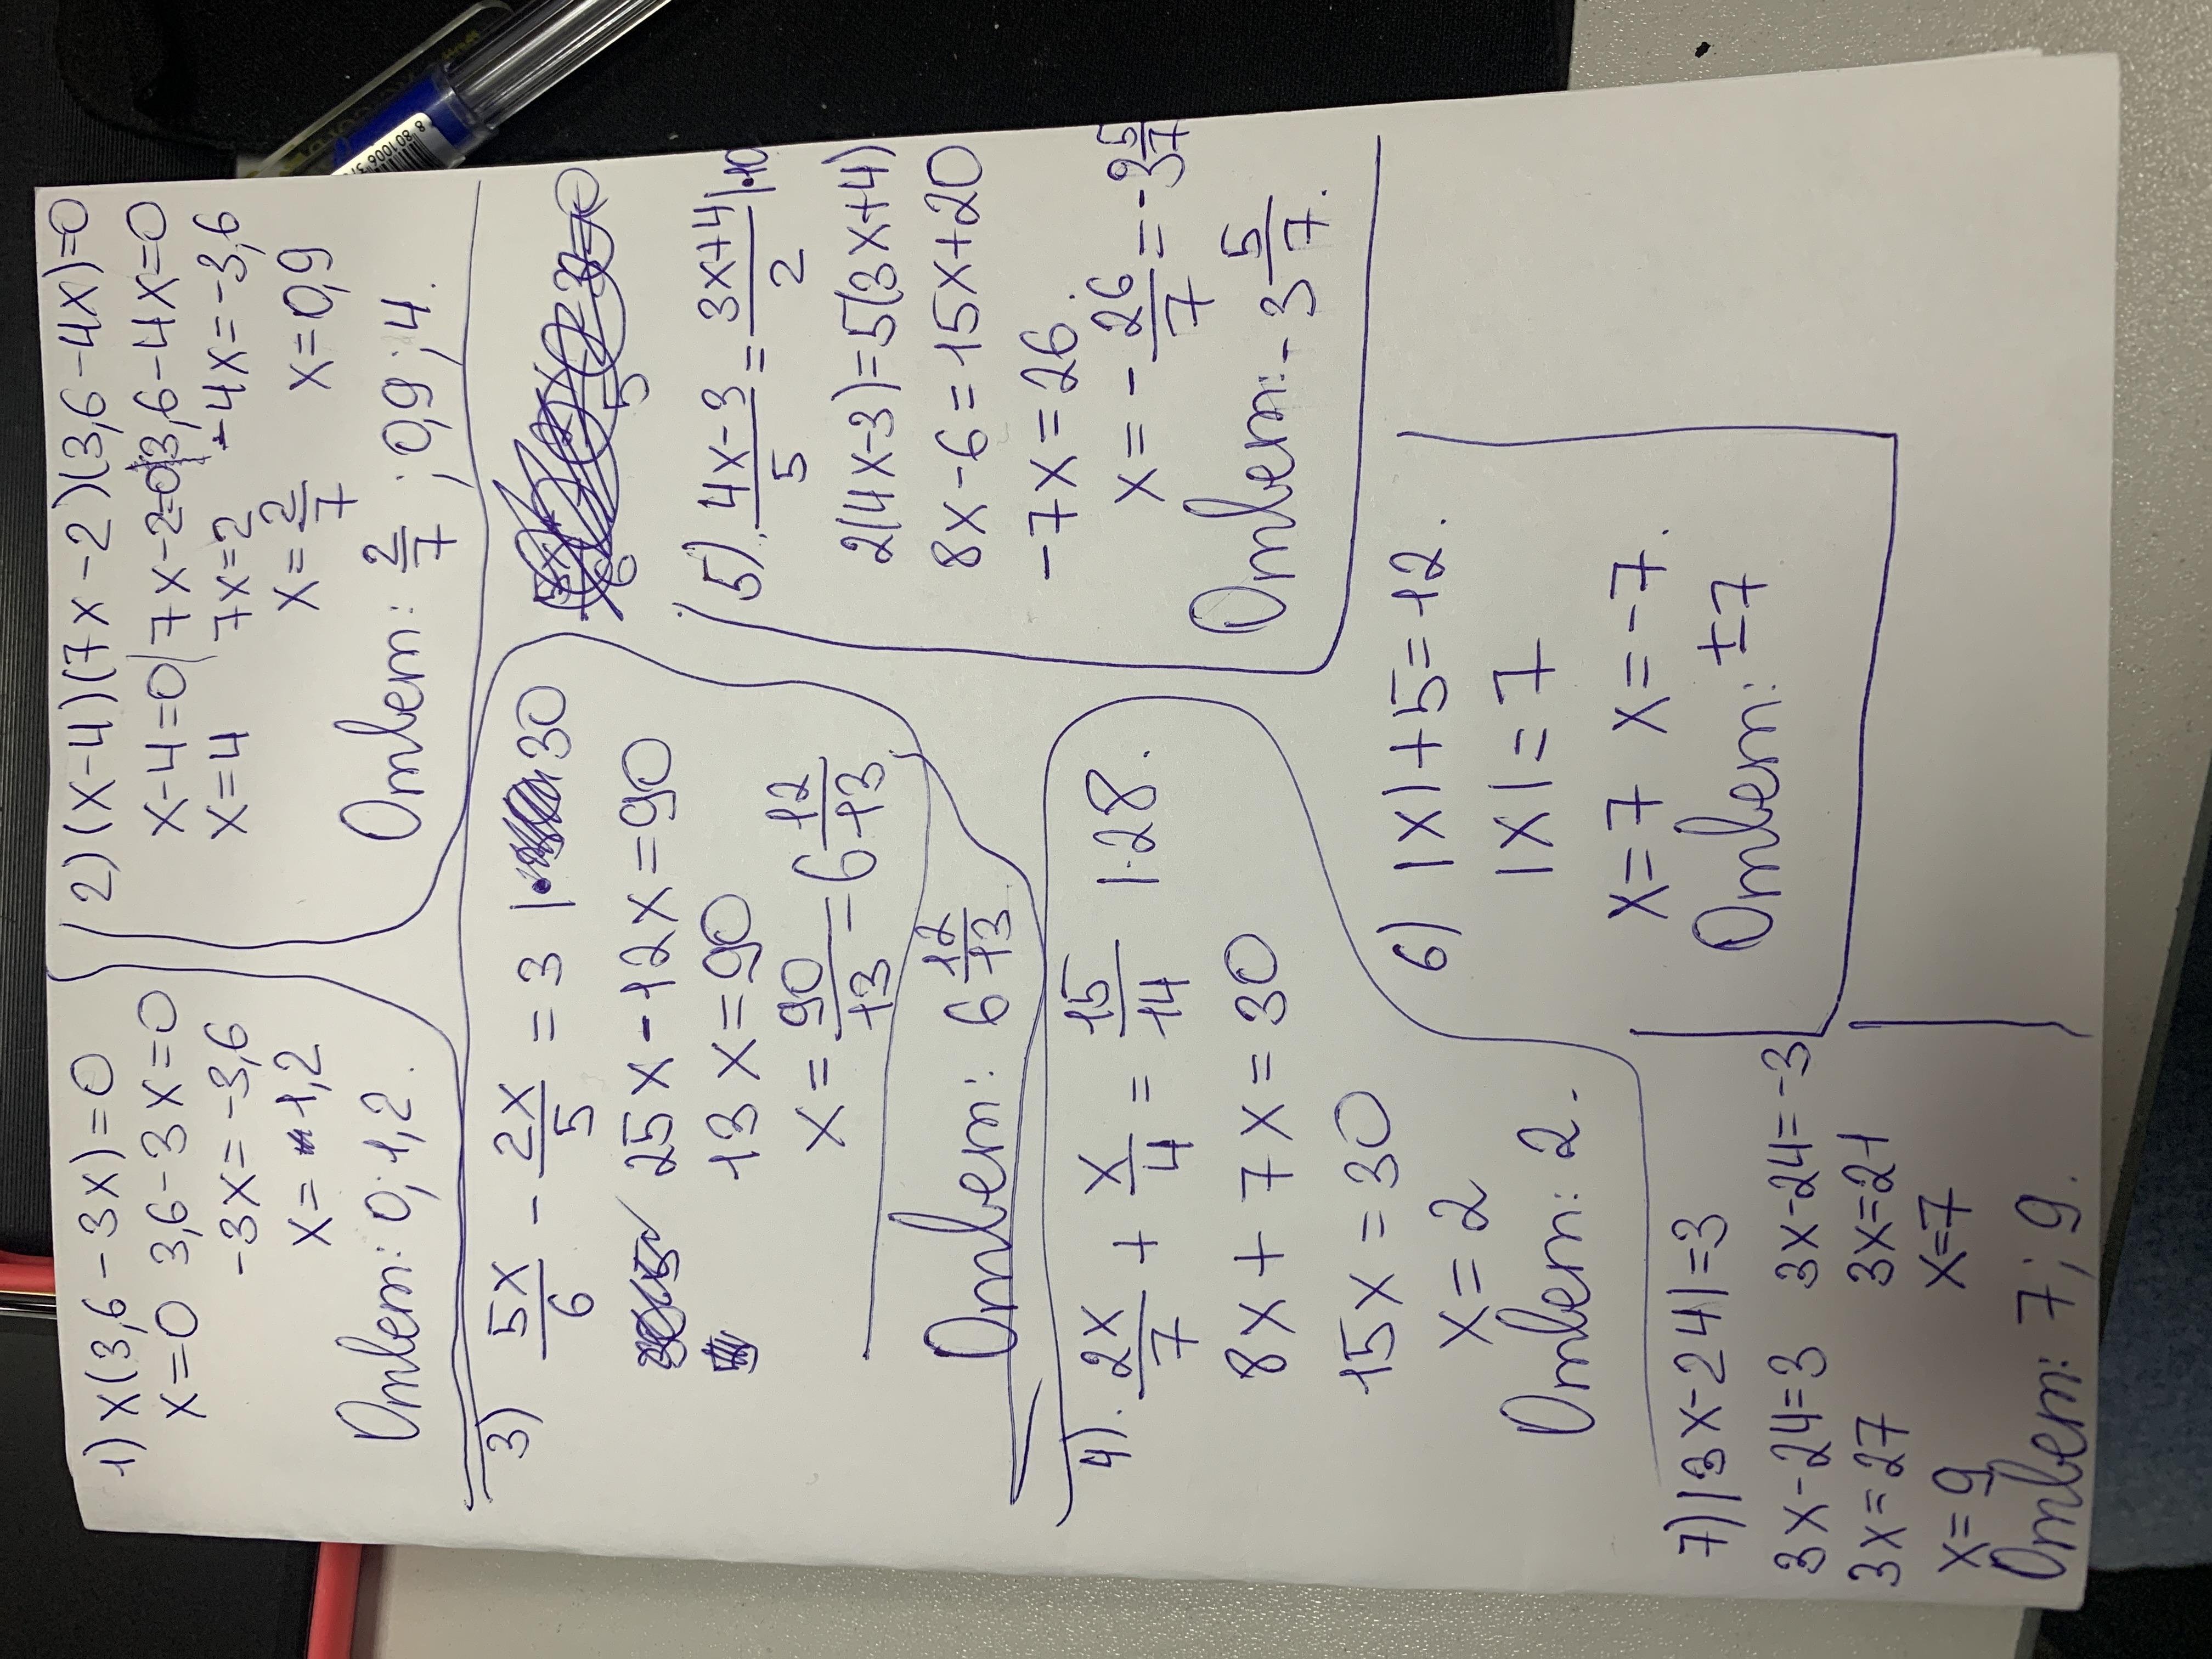 1) x(3,6 - 3x)=0
x=0 3,6-3x=0
-3x=-3,6
x=1,2
Ответ: 0; 1,2.
2) (x-4)(7x-2)(3,6-4x)=0
x-4=0 7x-2=0 3,6-4x=0
x=4 7x=2 -4x=-3,6
x=2/7 x=0,9
Ответ: 2/7; 0,9; 4.
3) 5x/6 - 2x/5 = 3 |·30
25x-12x=90
13x=90
x=90/13=6 12/13
Ответ: 6 12/13
4). 2x/7 + x/4 = 15/14 |·28.
8x+7x=30
15x=30
x=2
Ответ: 2.
5). 4x-3/5 = 3x+4/2 |·10
2(4x-3)=5(3x+4)
8x-6=15x+20
-7x=26
x=-26/7=-3 5/7
Ответ: -3 5/7.
6) |x|+5=12.
|x|=7
x=7 x=-7.
Ответ: ±7
7) |3x-24|=3
3x-24=3 3x-24=-3
3x=27 3x=21
x=9 x=7
Ответ: 7; 9.